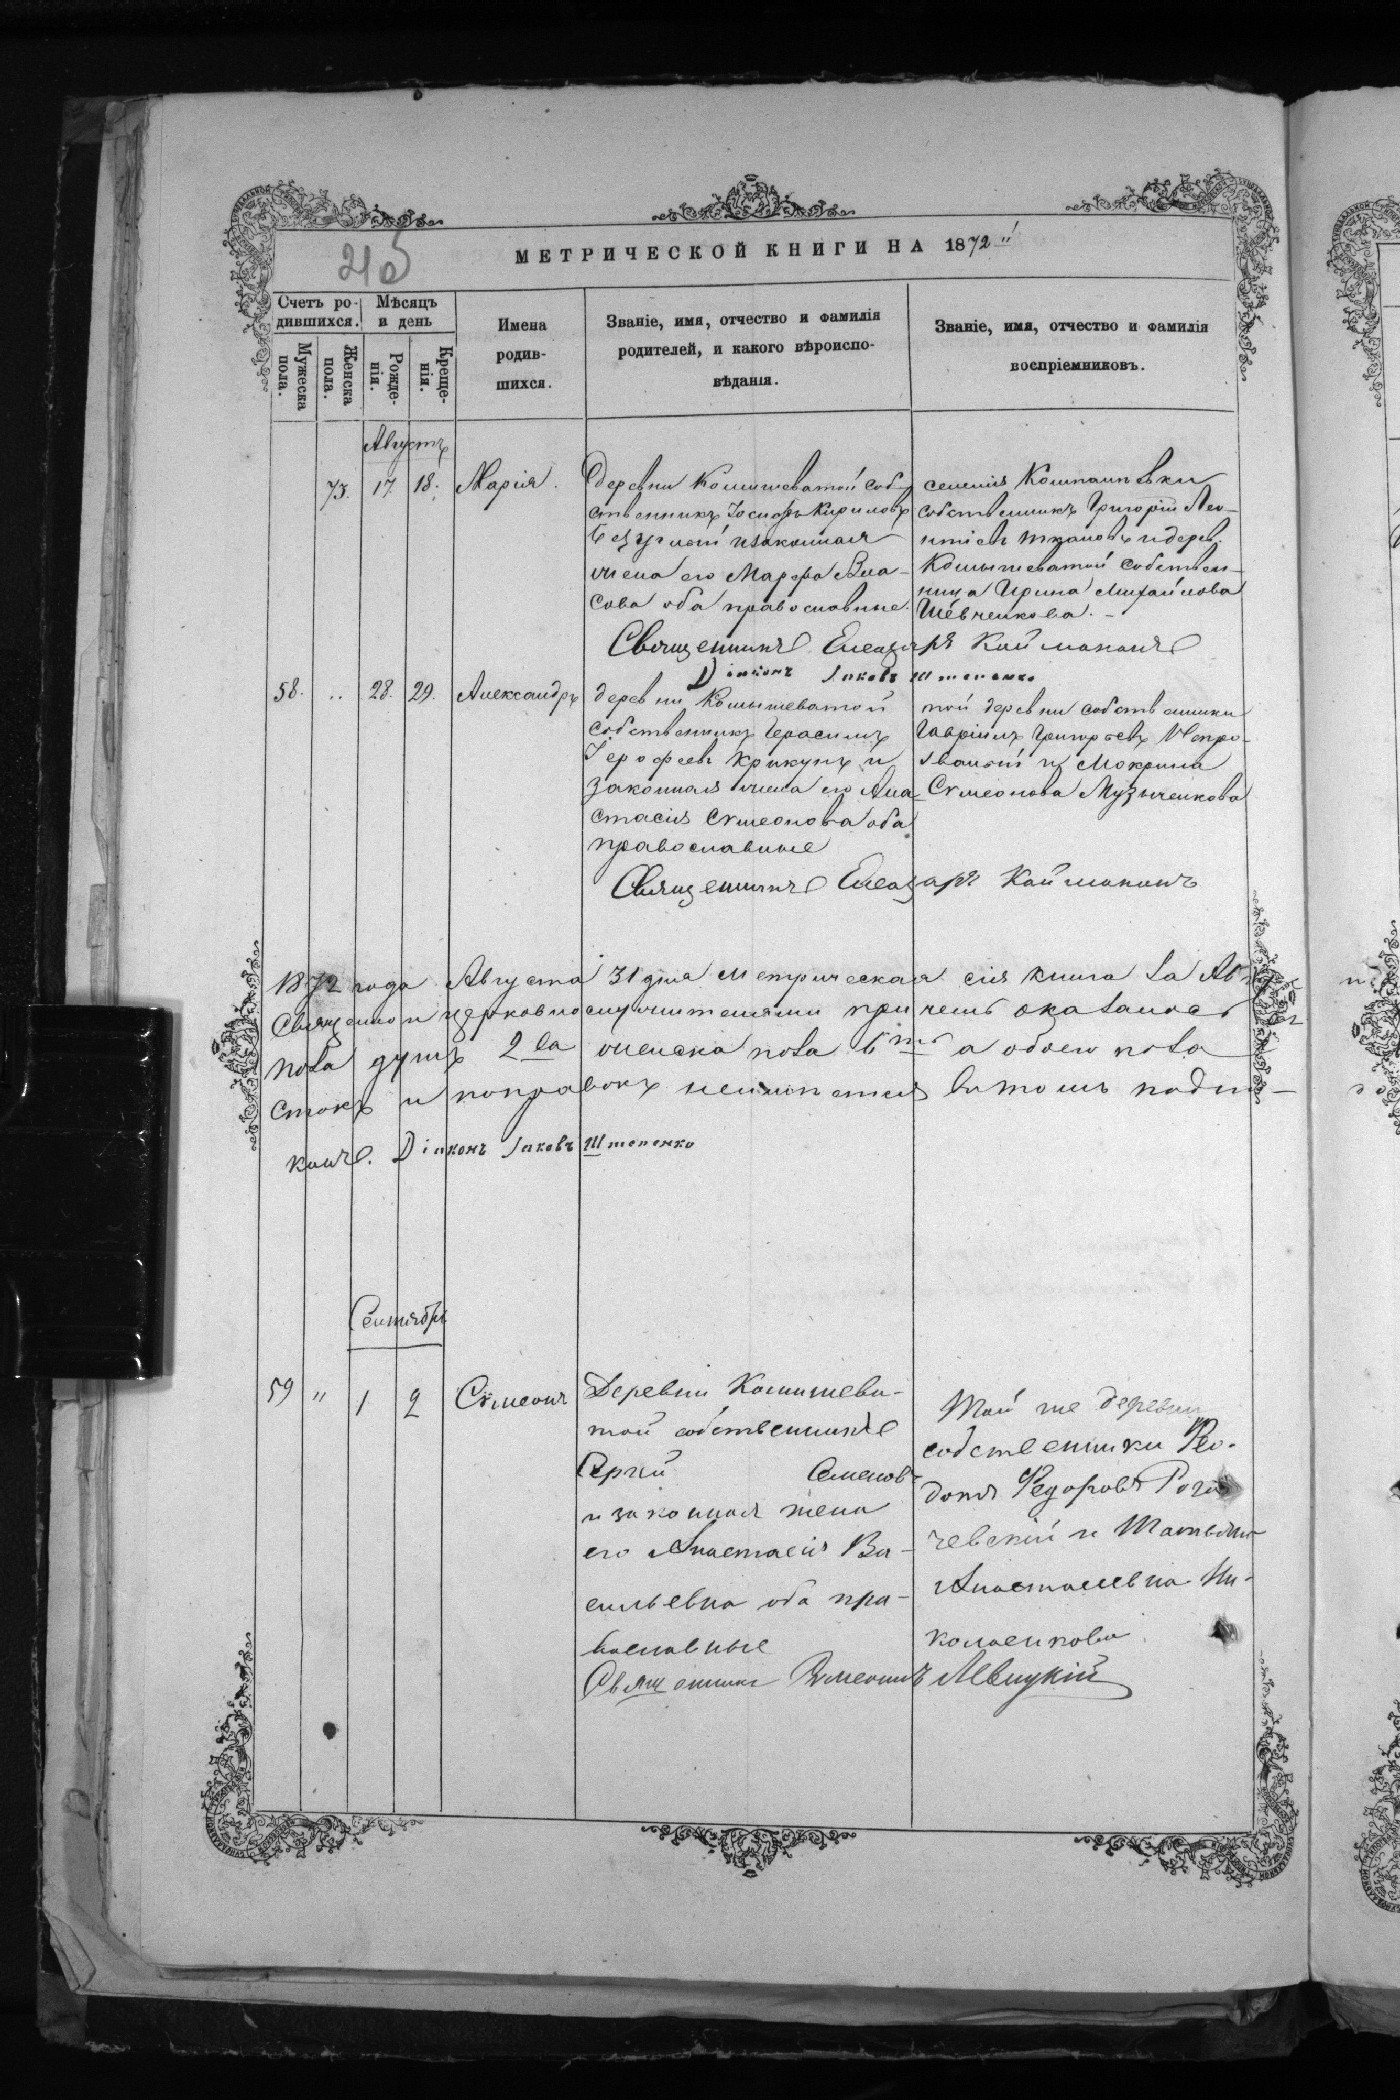 215
МЕТРИЧЕСКОЙ КНИГИ НА 1872
Счетъ ро-
дившихся.
Мѣсяцъ
и день
Мужеска
пола.
Женска
пола.
Рожде-
нія.
Креще-
нія.
Имена
родив-
шихся.
Званіе, имя, отчество и фамилія
родителей, и какого вѣроиспо-
вѣданія.
Званіе, имя, отчество и фамилія
воспріемниковъ.
Августъ
73. 17. 18. Марія.
Деревни Комышеватой соб-
ственникъ Іосифъ Кириловъ
Безуглый и законная
жена его Марфа Вла-
сова оба православные.
селенія Компаніевки
собственникъ Григорій Лео-
нтіевъ и дерев.
Комышеватой собствен-
ница Ирина Михайлова
Шевченкова. -
Священникъ Елеазаръ Каймаканъ
Діаконъ Іаковъ Штепенко
58. .. 28. 29. Александръ
деревни Комышеватой
собственникъ Герасимъ
Іерофеевъ Крикунъ и
законная жена его Ана-
стасія Сѵмеонова оба
православные
той деревни собственники
Гавріилъ Григорьевъ Непро-
и Мокрина
Сѵмеонова Музыченкова
Священникъ Елеазаръ Каймаканъ
1872 года Августа 31 дня Метрическая сія книга за Ав-
Священно и церковнослужителями причемъ оказалось
пола душъ 2ва женска пола 6ть а обоего пола
стокъ и поправокъ неимѣется въ томъ подпи-
Діаконъ Іаковъ Штепенко
Сентябрь
59 " 1 2 Сѵмеонъ
Деревни Комишева-
той собственникъ
Сергий Семеновъ
и законная жена
его Анастасія Ва-
сильевна оба пра-
вославные
Той же деревни
собственники Фео-
Федоровъ Рога-
чевскій и Татьяна
Анастасиевна Ни-
колаенкова
Священникъ Сѵмеонъ Левицкій